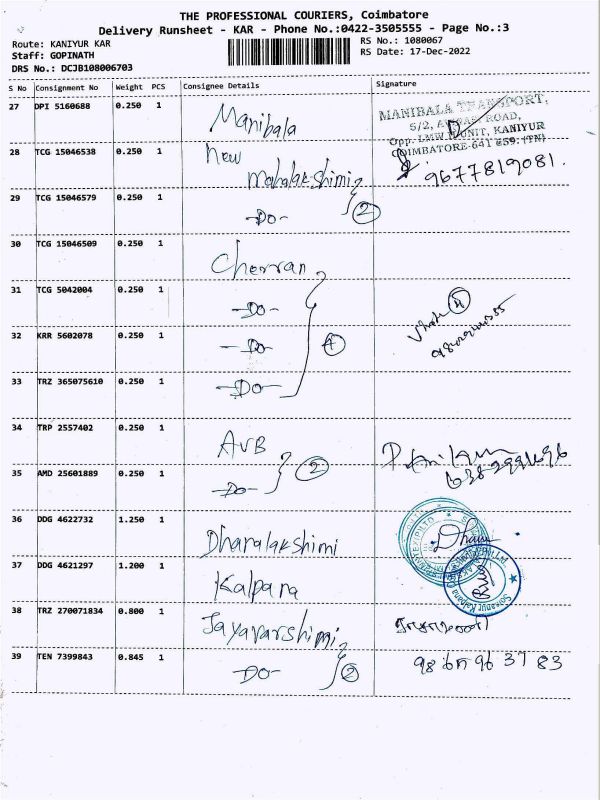 THE PROFESSIONAL COURIERS, Coimbatore
Delivery Runsheet - KAR - Phone No.:0422-3505555 - Page No.:3
Route: KANIYUR KAR
RS No.: 1080067
Staff: GOPINATH
RS Date: 17-Dec-2022
DRS No.: DCJB108006703
S No Consignment No Weight PCS Consignee Details Signature
27 DPI 5160688 0.250 1 Manibala
MANIBALA TRANSPORT,
5/2, ROAD,
Opp. LMW UNIT, KANIYUR
COIMBATORE-641 659. (TN)
28 TCG 15046538 0.250 1 New Mahalakshimi
9677819081.
29 TCG 15046579 0.250 1 -Do- 2
30 TCG 15046509 0.250 1 Cherran
31 TCG 5042004 0.250 1 -Do-
4
32 KRR 5602078 0.250 1 -Do- 4
33 TRZ 365075610 0.250 1 -Do-
34 TRP 2557402 0.250 1 AVB
35 AMD 25601889 0.250 1 -Do- 2
36 DDG 4622732 1.250 1 Dharalakshimi
37 DDG 4621297 1.200 1 Kalpana
38 TRZ 270071834 0.800 1 Jayavarshimi
39 TEN 7399843 0.845 1 -Do- 2